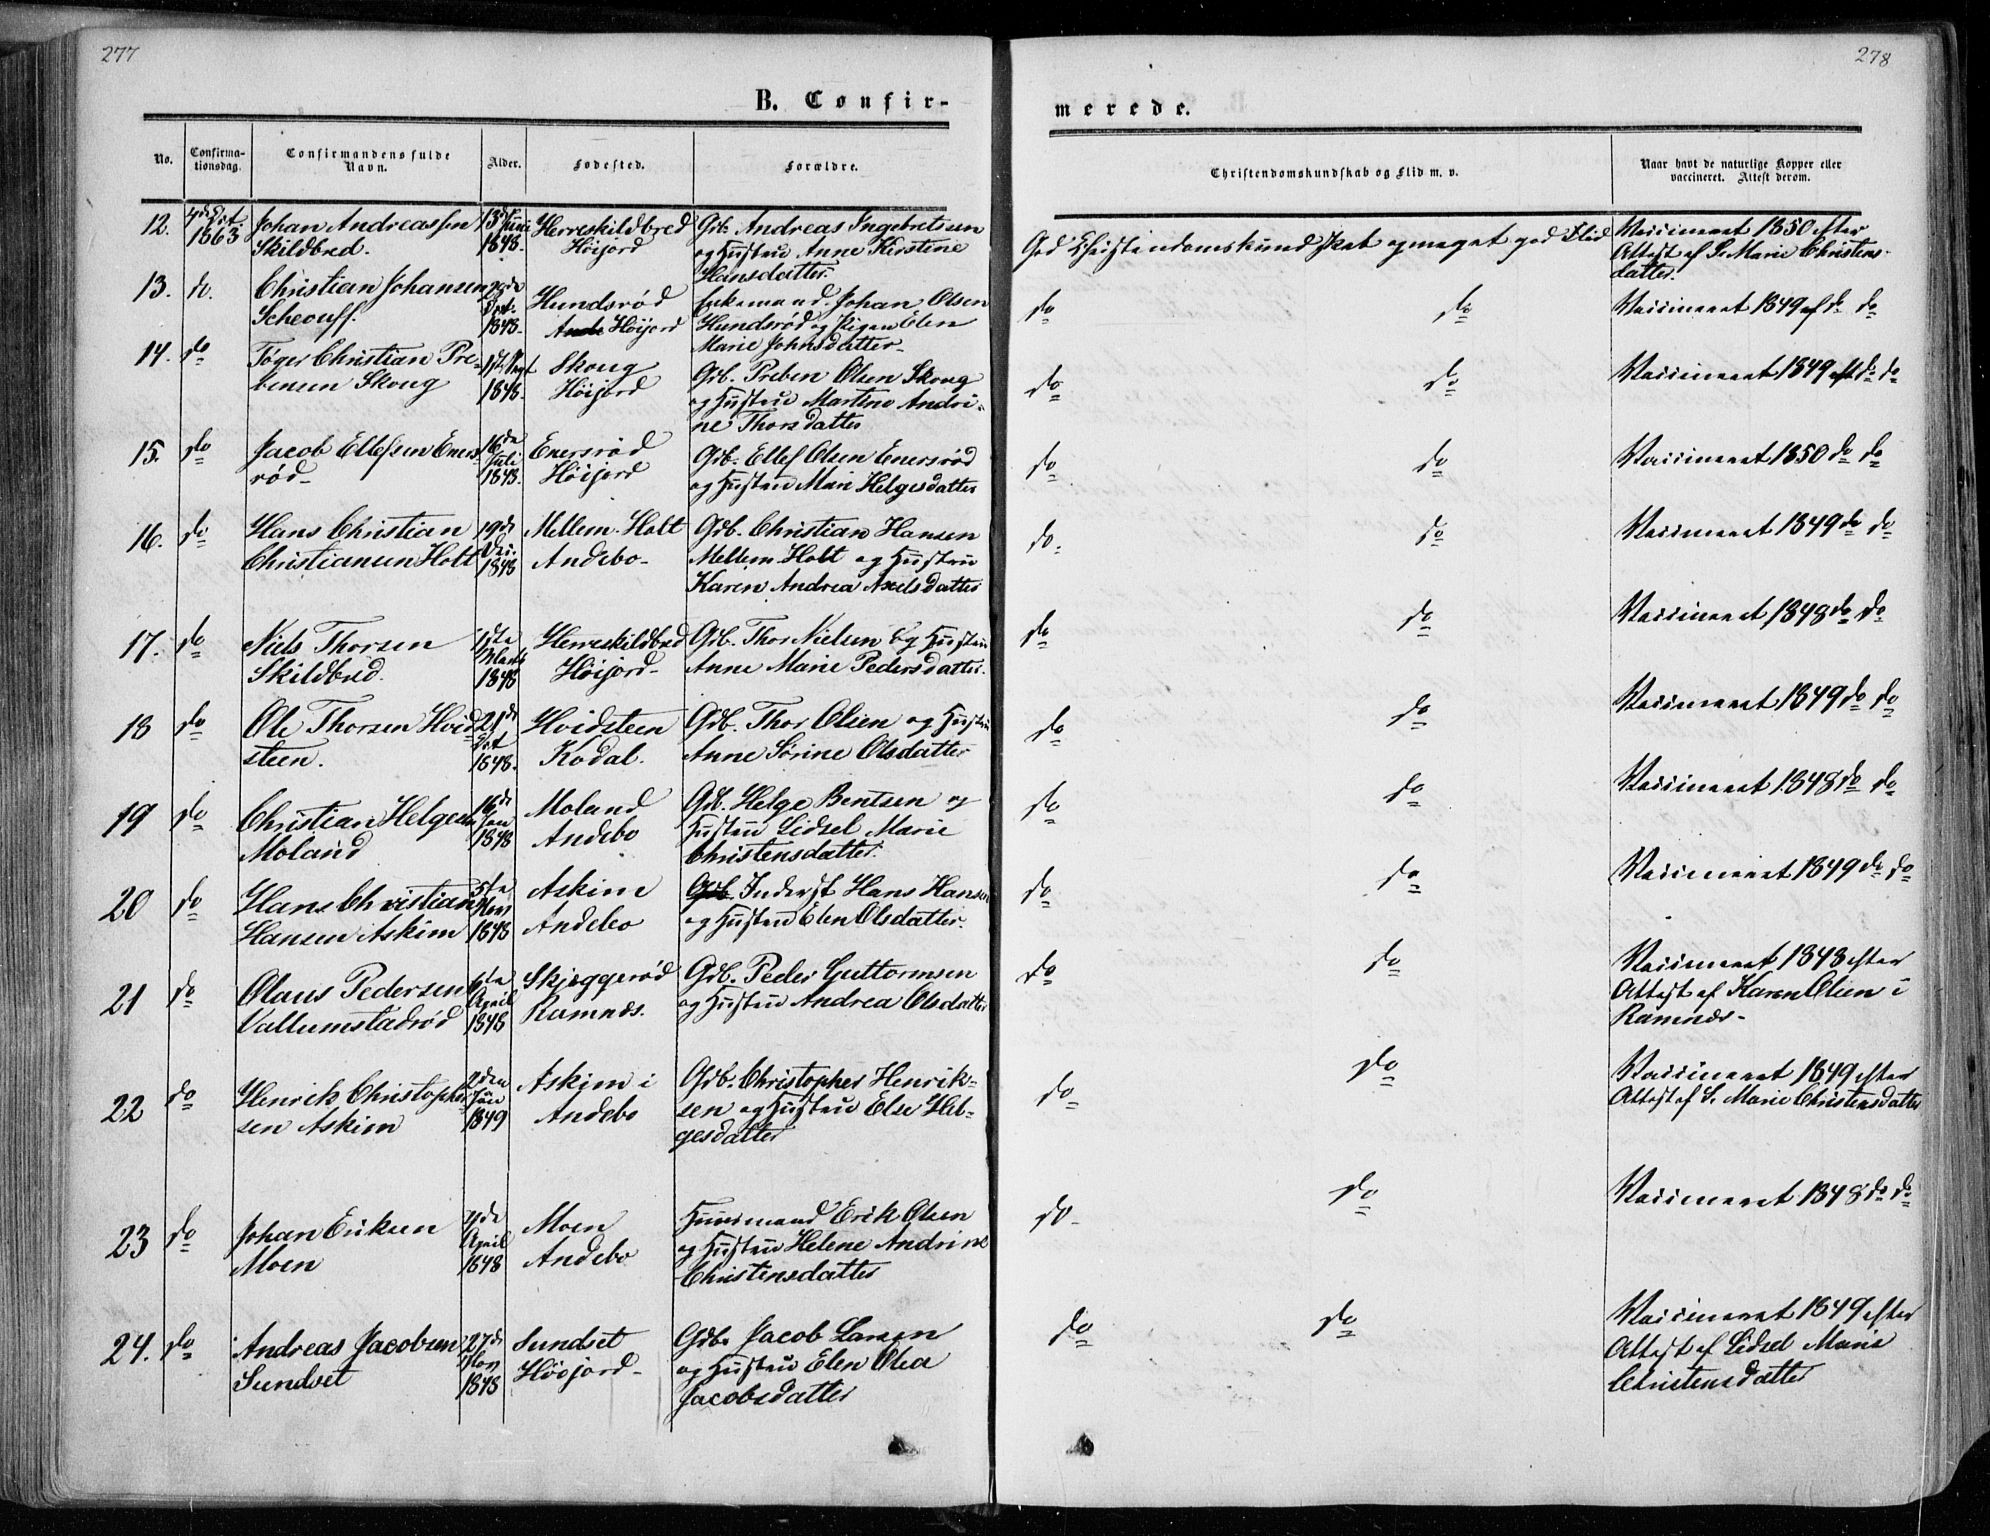 277
278
B. Confir-
merede.
No.
Confirma-
tionsdag.
Confirmandens fulde
Navn.
Alder.
Fødested.
Forældre.
Christendomskundskab og Flid m. v.
Naar havt de naturlige Kopper eller
vaccineret. Attest derom.
12. 4de Oct. Johan Andreassen 13de Juni Herreskildbred Grb. Andreas Ingebretsen
1863 Skildbred. 1848. Höijord og Hustru Anne Kirstine
Hansdatter.
God Christendomskundskab og meget god Flid
Vaccineret 1850 efter
Attest af S. Marie Christens-
datter.
13. do. Christian Johansen Hundsrød Enkemand Johan Olsen
Scheouff. Oct. 1848. Höijord Hundsrød og Pigen Elen
Marie Johnsdatter
do do Vaccineret 1849 af do do
14. do Tøger Christian Pre- Skoug Grb. Preben Olsen Skoug
bensen Skoug 1848. Höijord og Hustru Martine Andri-
ne Thorsdatter
do do Vaccineret 1849 eft do do
15. do Jacob Ellefsen Eners- 16de Enersrød Grb. Ellef Olsen Enersrød
rød Juli 1848. Höijord og Hustru Mari Helgesdatter
do do Vaccineret 1850 do do
16. do Hans Christian 19de Mellem-Holt Grb. Christian Hansen
Christiansen Holt 1848 Andebo Mellem-Holt og Hustru
Karen Andrea Axelsdatter
do do Vaccineret 1849 do do
17. do Niels Thorsen 1ste Herreskildbred Grb. Thor Nielsen og Hustru
Skildbred. Marts 1848 Höijord Anne Marie Pedersdatter.
do do Vaccineret 1848 do do
18 do Ole Thorsen Hvid 21de Hvidsteen Grb. Thor Olsen og Hustru
steen. Oct 1848. Kodal. Anne Sörine Olsdatter
do do Vaccineret 1849 do do
19 do Christian Helgesen 16de Moland Grb. Helge Bentsen og
Moland Jan 1848 Andebo Hustru Lidsel Marie
Christensdatter.
do do Vaccineret 1848 do do
20 do Hans Christian 5te Askim Grb. Inderst Hans Hansen
Hansen Askim Nov 1848 Andebo og Hustru Elen Olsdatter.
do do Vaccineret 1849 do do
21 do Olaus Pedersen Skjeggerød Grb. Peder Guttormsen
Vallumstadrød April 1848 Ramnæs. og Hustru Andrea Olsdatter
do do Vaccineret 1848 efter
Attest af Karen Olsen i
Ramnæs-
22 do Henrik Christopher- 2den Askim i Grb. Christopher Henrik-
sen Askim 1849 Andebo sen og Hustru Else Hel-
gesdatter
do do Vaccineret 1849 efter
Attest af S. Marie Christensdatter
23 do Johan Eriksen Moen Huusmand Erik Olsen
Moen April 1848 Andebo og Hustru Helene Andrine
Christensdatter
do do Vaccineret 1848 do do
24. do Andreas Jacobsen 27de Sundset Grb. Jacob Larsen
Sundset Nov 1848 Höijord og Hustru Elen Olea
Jacobsdatter
do do Vaccineret 1849 efter
Attest af Lidsel Marie
Christensdatter